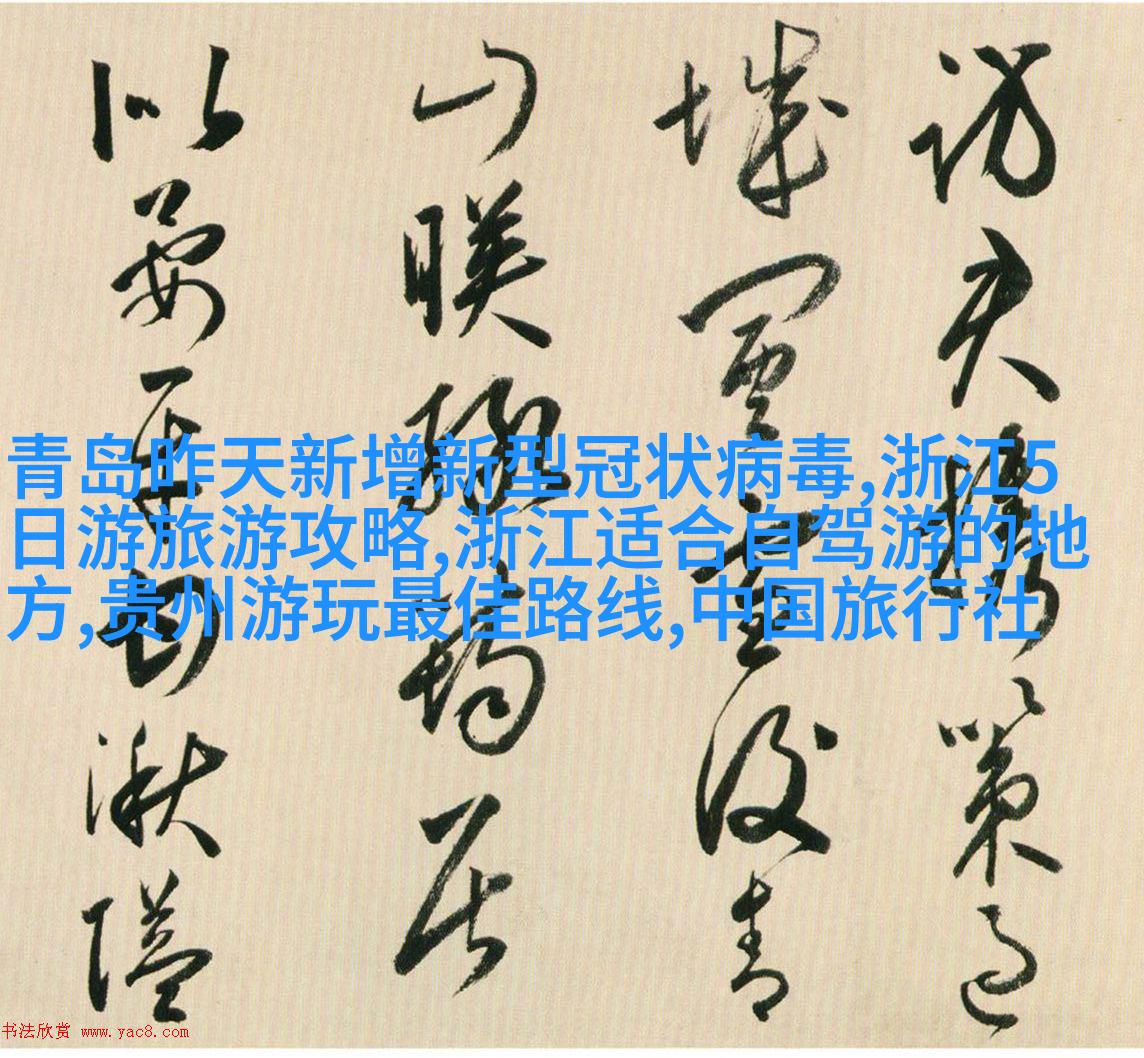 訪友策過
城重後青
山暎居
以湫隘
青岛昨天新增新型冠状病毒,浙江5
日游旅游攻略,浙江适合自驾游的地
方,贵州游玩最佳路线,中国旅行社
书法欣赏 www.yac8.com